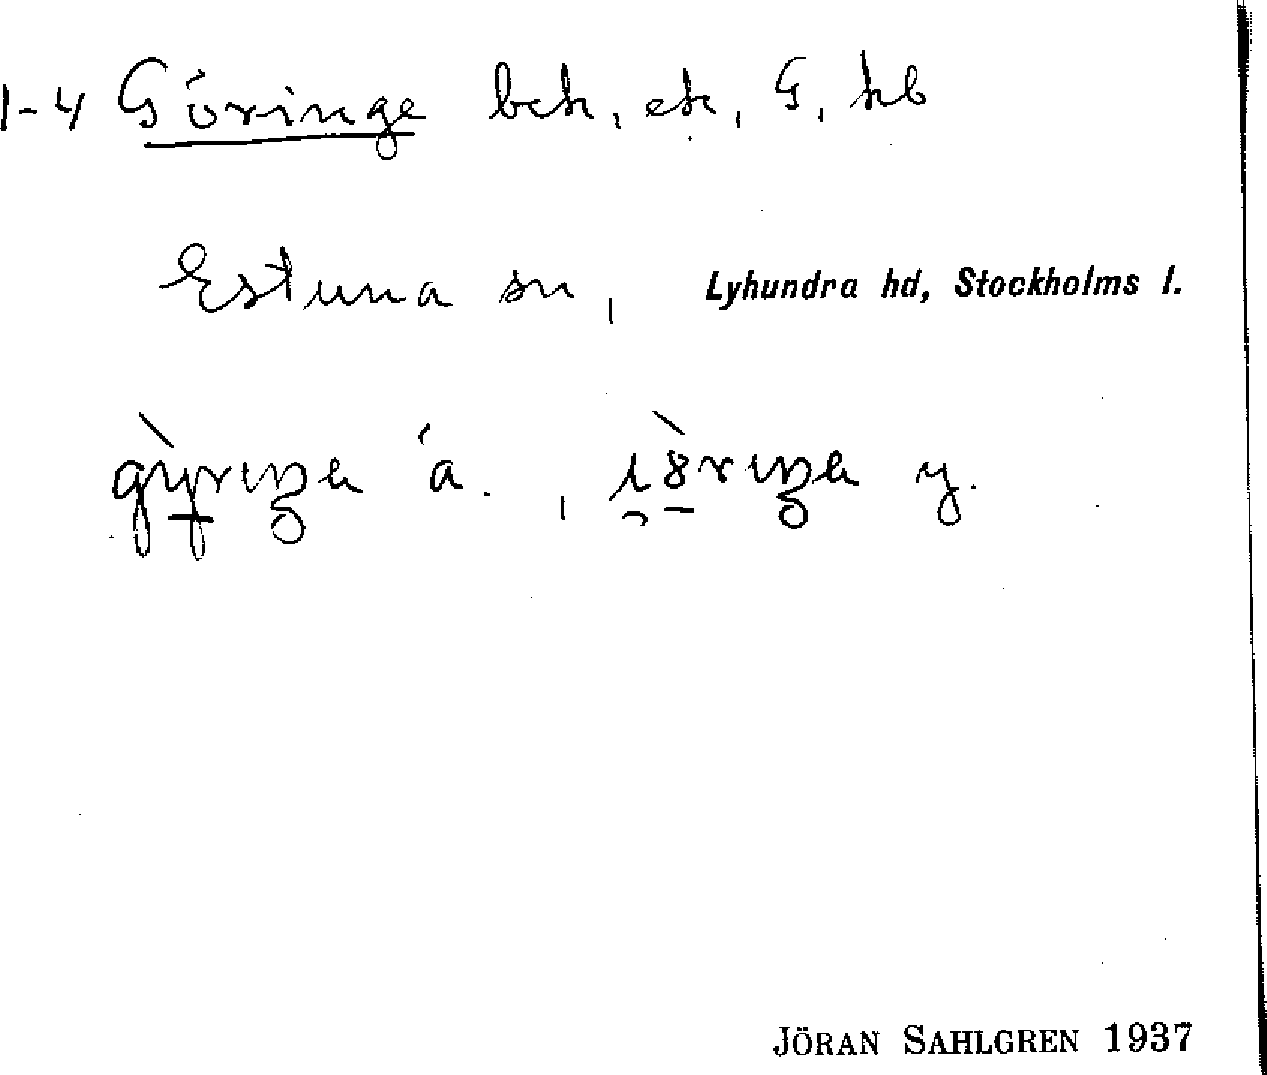 1-4 Göringe bek, ek, G, hb
Estuna sn, Lyhundra hd, Stockholms l.
á. , y.
JÖRAN SAHLGREN 1937